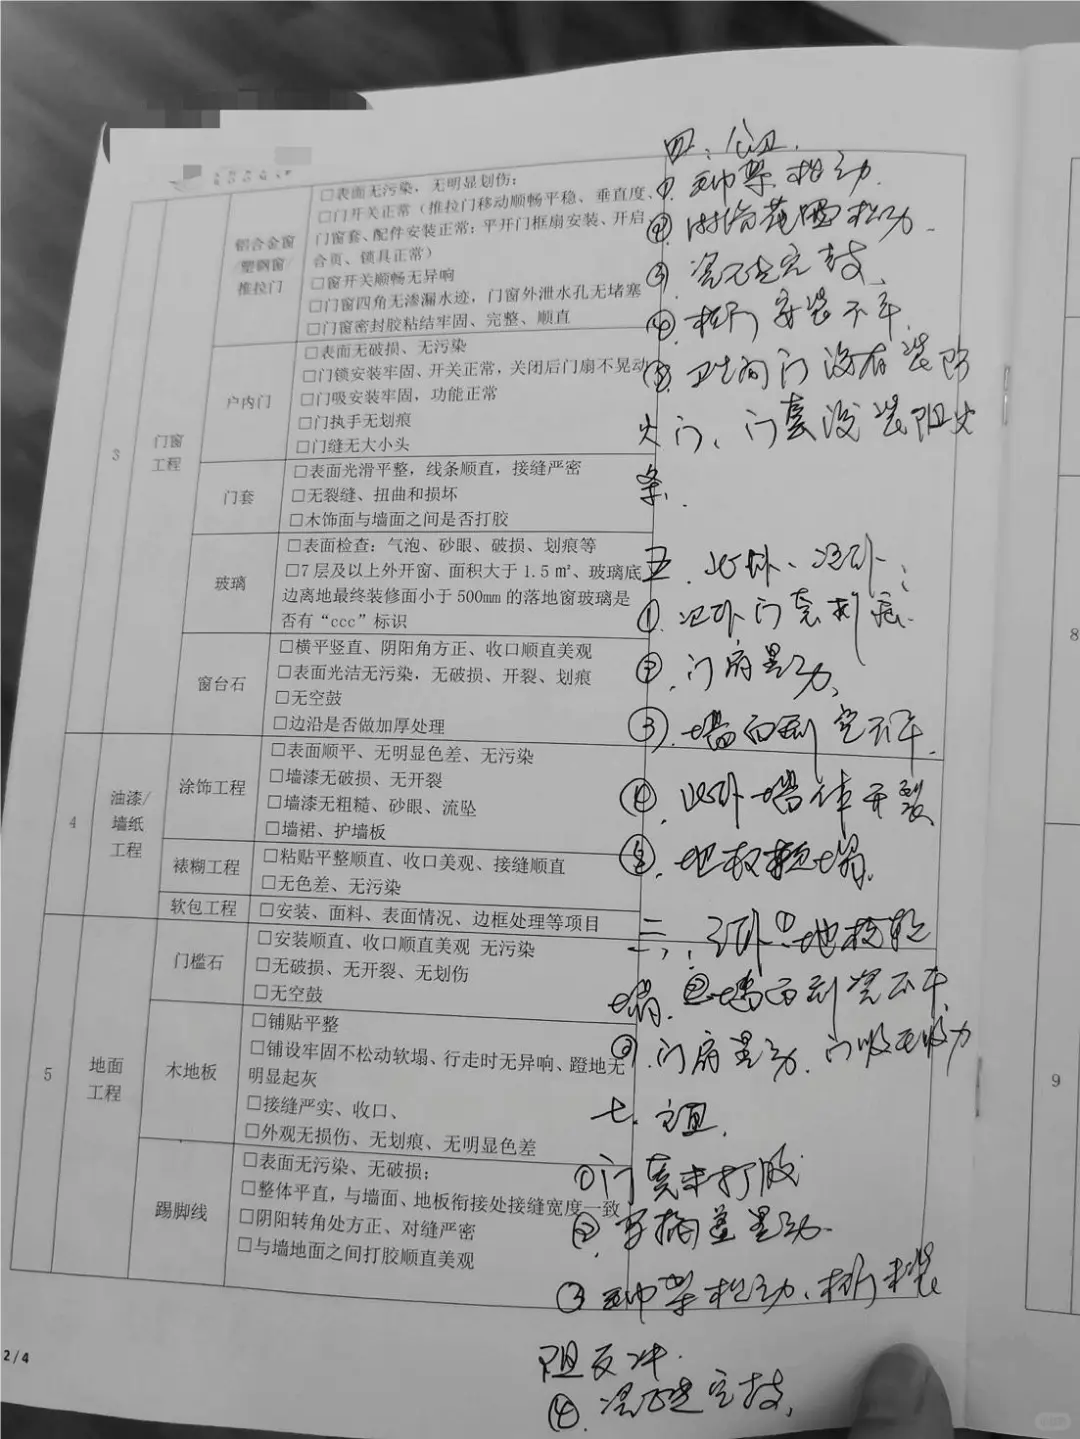 3
门窗
工程
铝合金窗
/塑钢窗/
推拉门
□表面无污染，无明显划伤；
□门开关正常（推拉门移动顺畅平稳、垂直度、
门窗套、配件安装正常；平开门框扇安装、开启
合页、锁具正常）
□窗开关顺畅无异响
□门窗四角无渗漏水迹，门窗外泄水孔无堵塞
□门窗密封胶粘结牢固、完整、顺直
户内门
□表面无破损、无污染
□门锁安装牢固、开关正常，关闭后门扇不晃动
□门吸安装牢固，功能正常
□门执手无划痕
□门缝无大小头
门套
□表面光滑平整，线条顺直，接缝严密
□无裂缝、扭曲和损坏
□木饰面与墙面之间是否打胶
玻璃
□表面检查：气泡、砂眼、破损、划痕等
□7层及以上外开窗、面积大于1.5㎡、玻璃底
边离地最终装修面小于500mm的落地窗玻璃是
否有“ccc”标识
窗台石
□横平竖直、阴阳角方正、收口顺直美观
□表面光洁无污染，无破损、开裂、划痕
□无空鼓
□边沿是否做加厚处理
4
油漆/
墙纸
工程
涂饰工程
□表面顺平、无明显色差、无污染
□墙漆无破损、无开裂
□墙漆无粗糙、砂眼、流坠
□墙裙、护墙板
裱糊工程
□粘贴平整顺直、收口美观、接缝顺直
□无色差、无污染
软包工程
□安装、面料、表面情况、边框处理等项目
5
地面
工程
门槛石
□安装顺直、收口顺直美观 无污染
□无破损、无开裂、无划伤
□无空鼓
木地板
□铺贴平整
□铺设牢固不松动软塌、行走时无异响、蹬地无
明显起灰
□接缝严实、收口、
□外观无损伤、无划痕、无明显色差
踢脚线
□表面无污染、无破损；
□整体平直，与墙面、地板衔接处接缝宽度一致
□阴阳转角处方正、对缝严密
□与墙地面之间打胶顺直美观
四、公卫.
①架松动.
②淋浴花洒松动.
③瓷砖空鼓
④柜门安装不平.
⑤卫生间门没有装防
火门、门套没装阻火
条.
五.北卧、次卧：
①.次卧门套
②.门扇晃动、
③.墙面不平.
④.北卧墙体开裂
⑤.地板软塌.
①地板软
塌.②墙面不平.
③.门扇晃动.门吸无吸力
七.主卫.
①门套未打胶
②.盖晃动.
③架松动、柜门未装
阻反冲.
④.瓷砖空鼓、
2/4
8
9